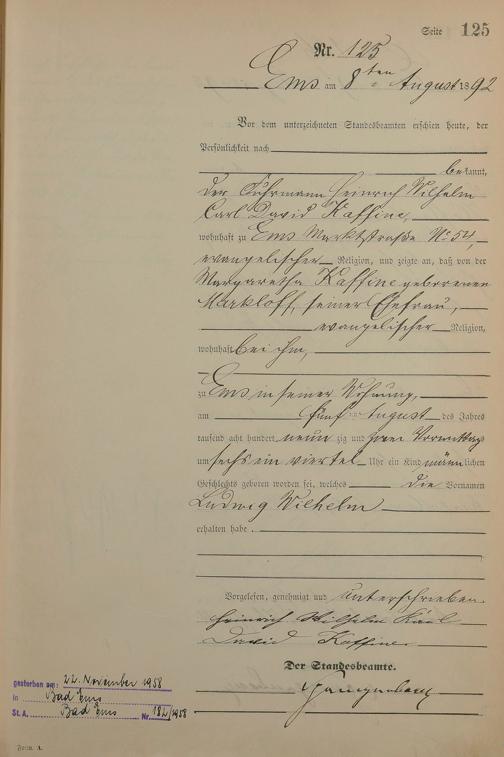 Seite 125
Nr. 125
Ems am 8ten August 1892
Vor dem unterzeichneten Standesbeamten erschien heute, der
Persönlichkeit nach
bekannt,
der Fuhrmann Heinrich Wilhelm
Carl David Kaffine,
wohnhaft zu Ems Marktstraße No 54,
evangelischer Religion, und zeigte an, daß von der
Margaretha Kaffine geborenen
Markloff, seiner Ehefrau,
evangelischer Religion,
wohnhaft bei ihm,
zu Ems in seiner Wohnung,
am fünften August des Jahres
tausend acht hundert neun zig und zwei Vormittags
um sechs ein viertel Uhr ein Kind männlichen
Geschlechts geboren worden sei, welches die Vornamen
Ludwig Wilhelm
erhalten habe.
Vorgelesen, genehmigt und unterschrieben.
Heinrich Wilhelm Karl
David Kaffine
Der Standesbeamte.
gestorben am: 22. November 1958
in Bad Ems
St. A. Bad Ems Nr. 182/1958
Form. A.